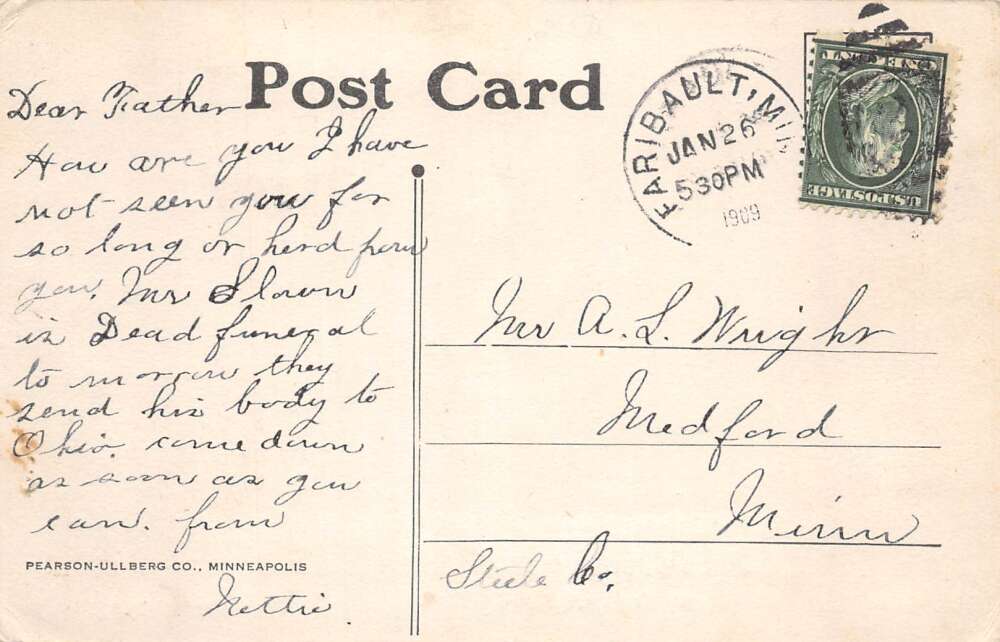 Post Card
Dear Father
How are you I have
not seen you for
so long or herd from
you. Mr Slown
is Dead funeral
to morrow they
send his body to
Ohio. come down
as soon as you
can. from
Nettie
PEARSON-ULLBERG CO., MINNEAPOLIS
FARIBAULT, MINN
JAN 26
530PM
1909
U.S. POSTAGE
Mr A. L. Wright
Medford
Minn
Steele Co.